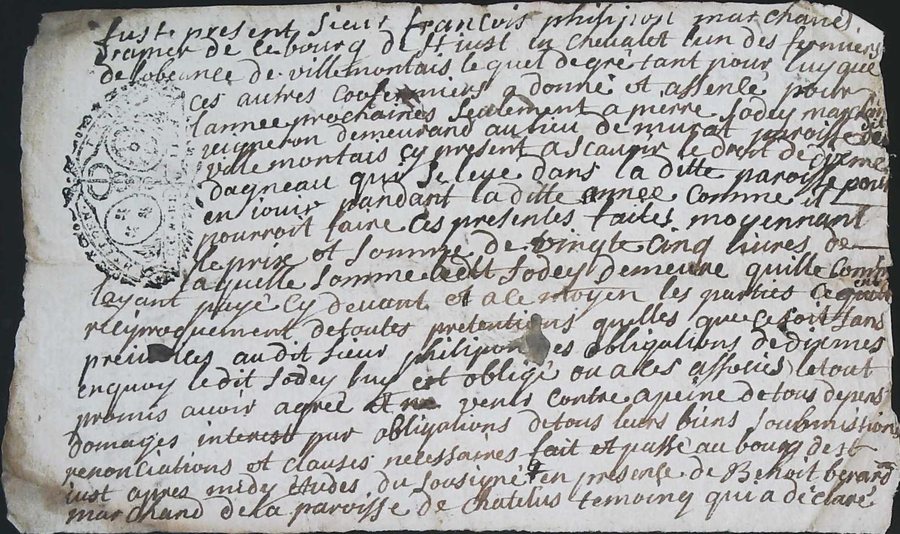 fust present sieur francois philippon marchand
framier de ce bourg de St iust en chevalet lun des fermiers
de lobeance de villemontais lequel de gre tant pour luy que
ces autres confermiers a donné et assensé pour
lannee prochaines seulement a pierre Sodey marchan
vigneron demeurand au lieu de murat paroisse de
ville montais cy present a scavoir le droit de dixme
dagneau qui se leve dans la ditte paroisse pour
en iouir pandant la ditte annee comme il
pourroit faire ces presentes faites moyennant
le prix et somme de vingte cinq livres de
laquille somme ledit Sodey demeure quitte comme
layant payé cy devant et a ce moyen les parties ce quitte
reciproquement de toutes pretentions quelles que ce soit sans
preiudices audit sieur philipon des obligations de dixmes
en quoy ledit Sodey luy est obligé ou a ces associés le tout
promis avoir agreé et ne venir contre a peine de tous depens
domages interest par obligations de tous leurs biens soubmissions
renonciations et clauses necessaires fait et passé au bourg de st
iust apres midy etudes du sousigné en presence de Benoit berard
marchand de la paroisse de chatelus temoing qui a declaré